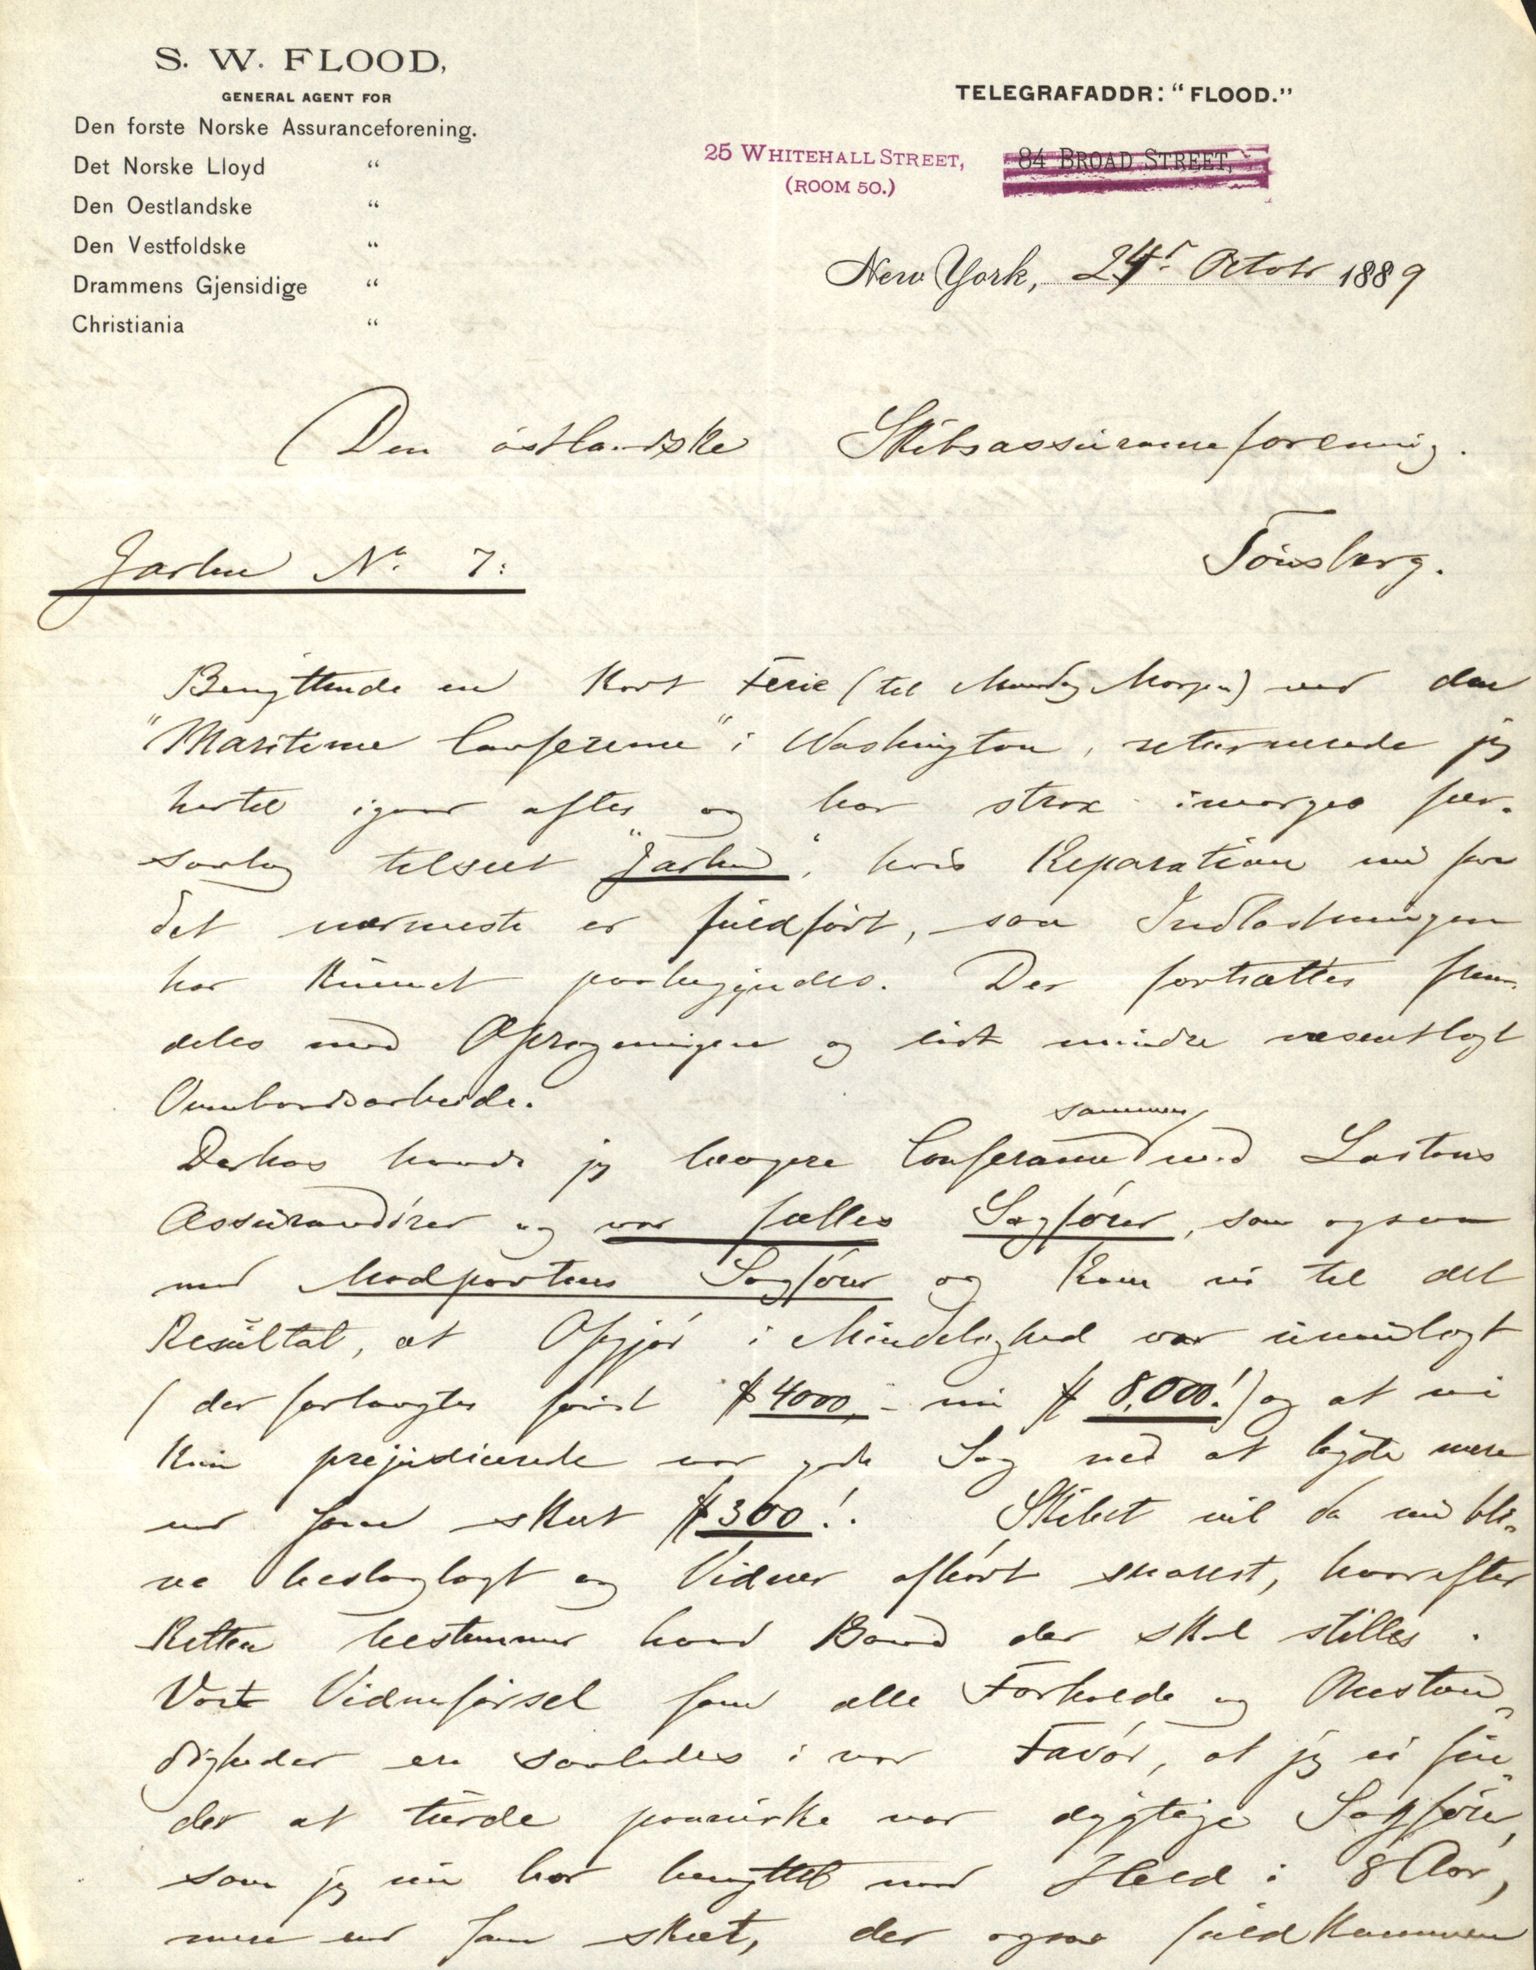 S. W. FLOOD,
GENERAL AGENT FOR
Den forste Norske Assuranceforening.
Det Norske Lloyd "
Den Oestlandske "
Den Vestfoldske "
Drammens Gjensidige "
Christiania "
TELEGRAFADDR: "FLOOD."
25 WHITEHALL STREET, 84 BROAD STREET,
(ROOM 50.)
New York, 24de Octobr 1889
Den östlandske Skibsassuranceforening.
Tönsberg.
Jarlen No. 7:
Benyttende en kort Ferie (til Mandag Morgen) ved den
"Maritime Conferenne" i Washington, returnerede jeg
hertil igaar aftes og har strax imorges per-
sonlig tilseet "Jarlen", hvis Reparation nu for
det nærmeste er fuldfört, saa Indlastningen
har kunnet paabegyndes. Der fortsættes frem-
deles med Oprigningen og lidt mindre væsentligt
Ombordsarbeide.
Derhos havde jeg længere Conferance sammen med Lastens
Assurandörer og vor fælles Sagförer, som ogsaa
med Modpartens Sagförer og kom vi til det
Resültat, at Opgjör i Mindelighed var umuligt
(der forlangtes först $4000,- nu $8,000.!) og at vi
kun prejudicerede vor gode Sag ved at byde mere
end som skeet $300!. Skibet vil da nu bli-
ve beslaglagt og Vidner afhört snarest, hvorefter
Retten bestemmer hvad Bond der skal stilles.
Vort Vidneförsel som alle Forholde og Omstæn-
digheder ere saaledes i vor Favör, at jeg ei fin-
der at turde paavirke vor dygtige Sagförer,
som jeg nu har benyttet med Held i 8 Aar,
mere end som skeet, der ogsaa fuldkommen